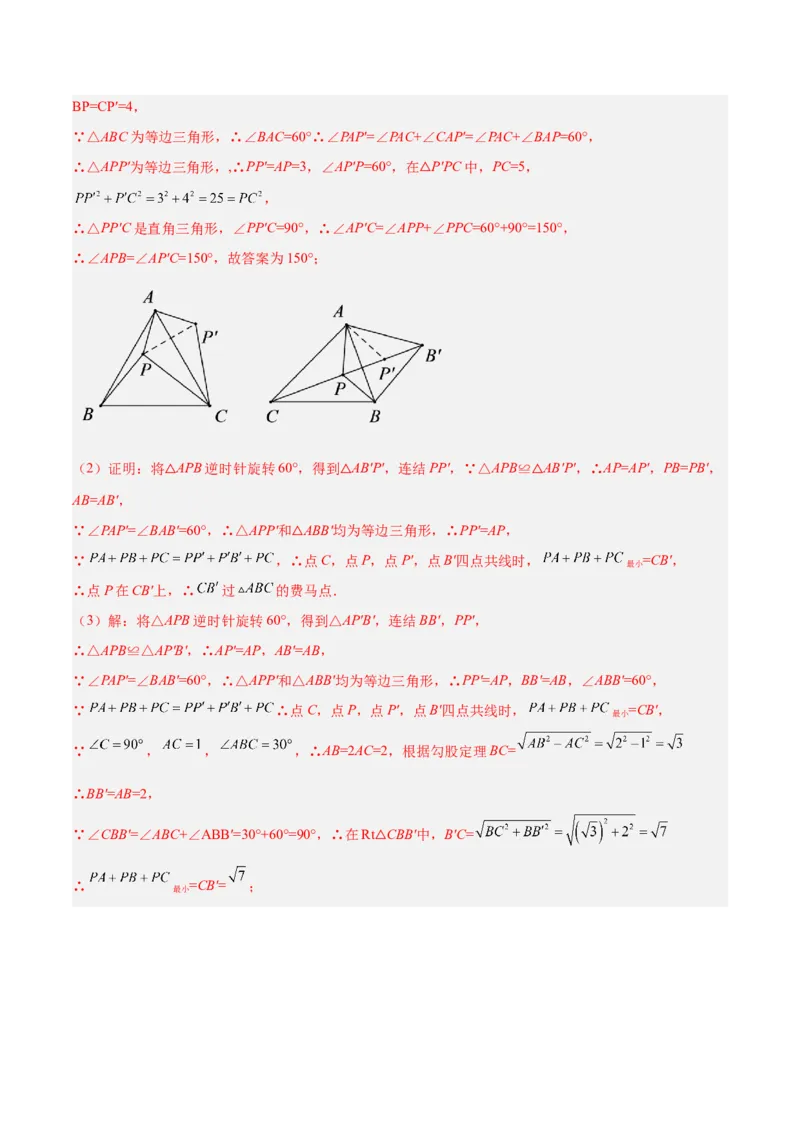 BP=CP′=4，
∵△ABC为等边三角形，∴∠BAC=60°∴∠PAP′=∠PAC+∠CAP′=∠PAC+∠BAP=60°，
∴△APP′为等边三角形，,∴PP′=AP=3，∠AP′P=60°，在△P′PC中，PC=5，
PP′²＋P′C²＝3²＋4²＝25＝PC²，
∴△PP′C是直角三角形，∠PP′C=90°，∴∠AP′C=∠APP+∠PPC=60°+90°=150°，
∴∠APB=∠AP′C=150°，故答案为150°；
A
P′
P
B
C
A
B′
P′
P
C
B
（2）证明：将△APB逆时针旋转60°，得到△AB′P′，连结PP′，∵△APB≌△AB′P′，∴AP=AP′，PB=PB′，
AB=AB′，
∵∠PAP′=∠BAB′=60°，∴△APP′和△ABB′均为等边三角形，∴PP′=AP，
∵PA＋PB＋PC＝PP′＋P′B′＋PC，∴点C，点P，点P′，点B′四点共线时，PA＋PB＋PC最小=CB′，
∴点P在CB′上，∴CB′过△ABC的费马点．
（3）解：将△APB逆时针旋转60°，得到△AP′B′，连结BB′，PP′，
∴△APB≌△AP′B′，∴AP′=AP，AB′=AB，
∵∠PAP′=∠BAB′=60°，∴△APP′和△ABB′均为等边三角形，∴PP′=AP，BB′=AB，∠ABB′=60°，
∵PA＋PB＋PC＝PP′＋P′B′＋PC∴点C，点P，点P′，点B′四点共线时，PA＋PB＋PC最小=CB′，
∵∠C＝90°，AC＝1，∠ABC＝30°，∴AB=2AC=2，根据勾股定理BC=√(AB²－AC²)＝√(2²－1²)＝√3
∴BB′=AB=2，
∵∠CBB′=∠ABC+∠ABB′=30°+60°=90°，∴在Rt△CBB′中，B′C=√(BC²＋BB′²)＝√((√3)²＋2²)＝√7
∴PA＋PB＋PC最小=CB′=√7；